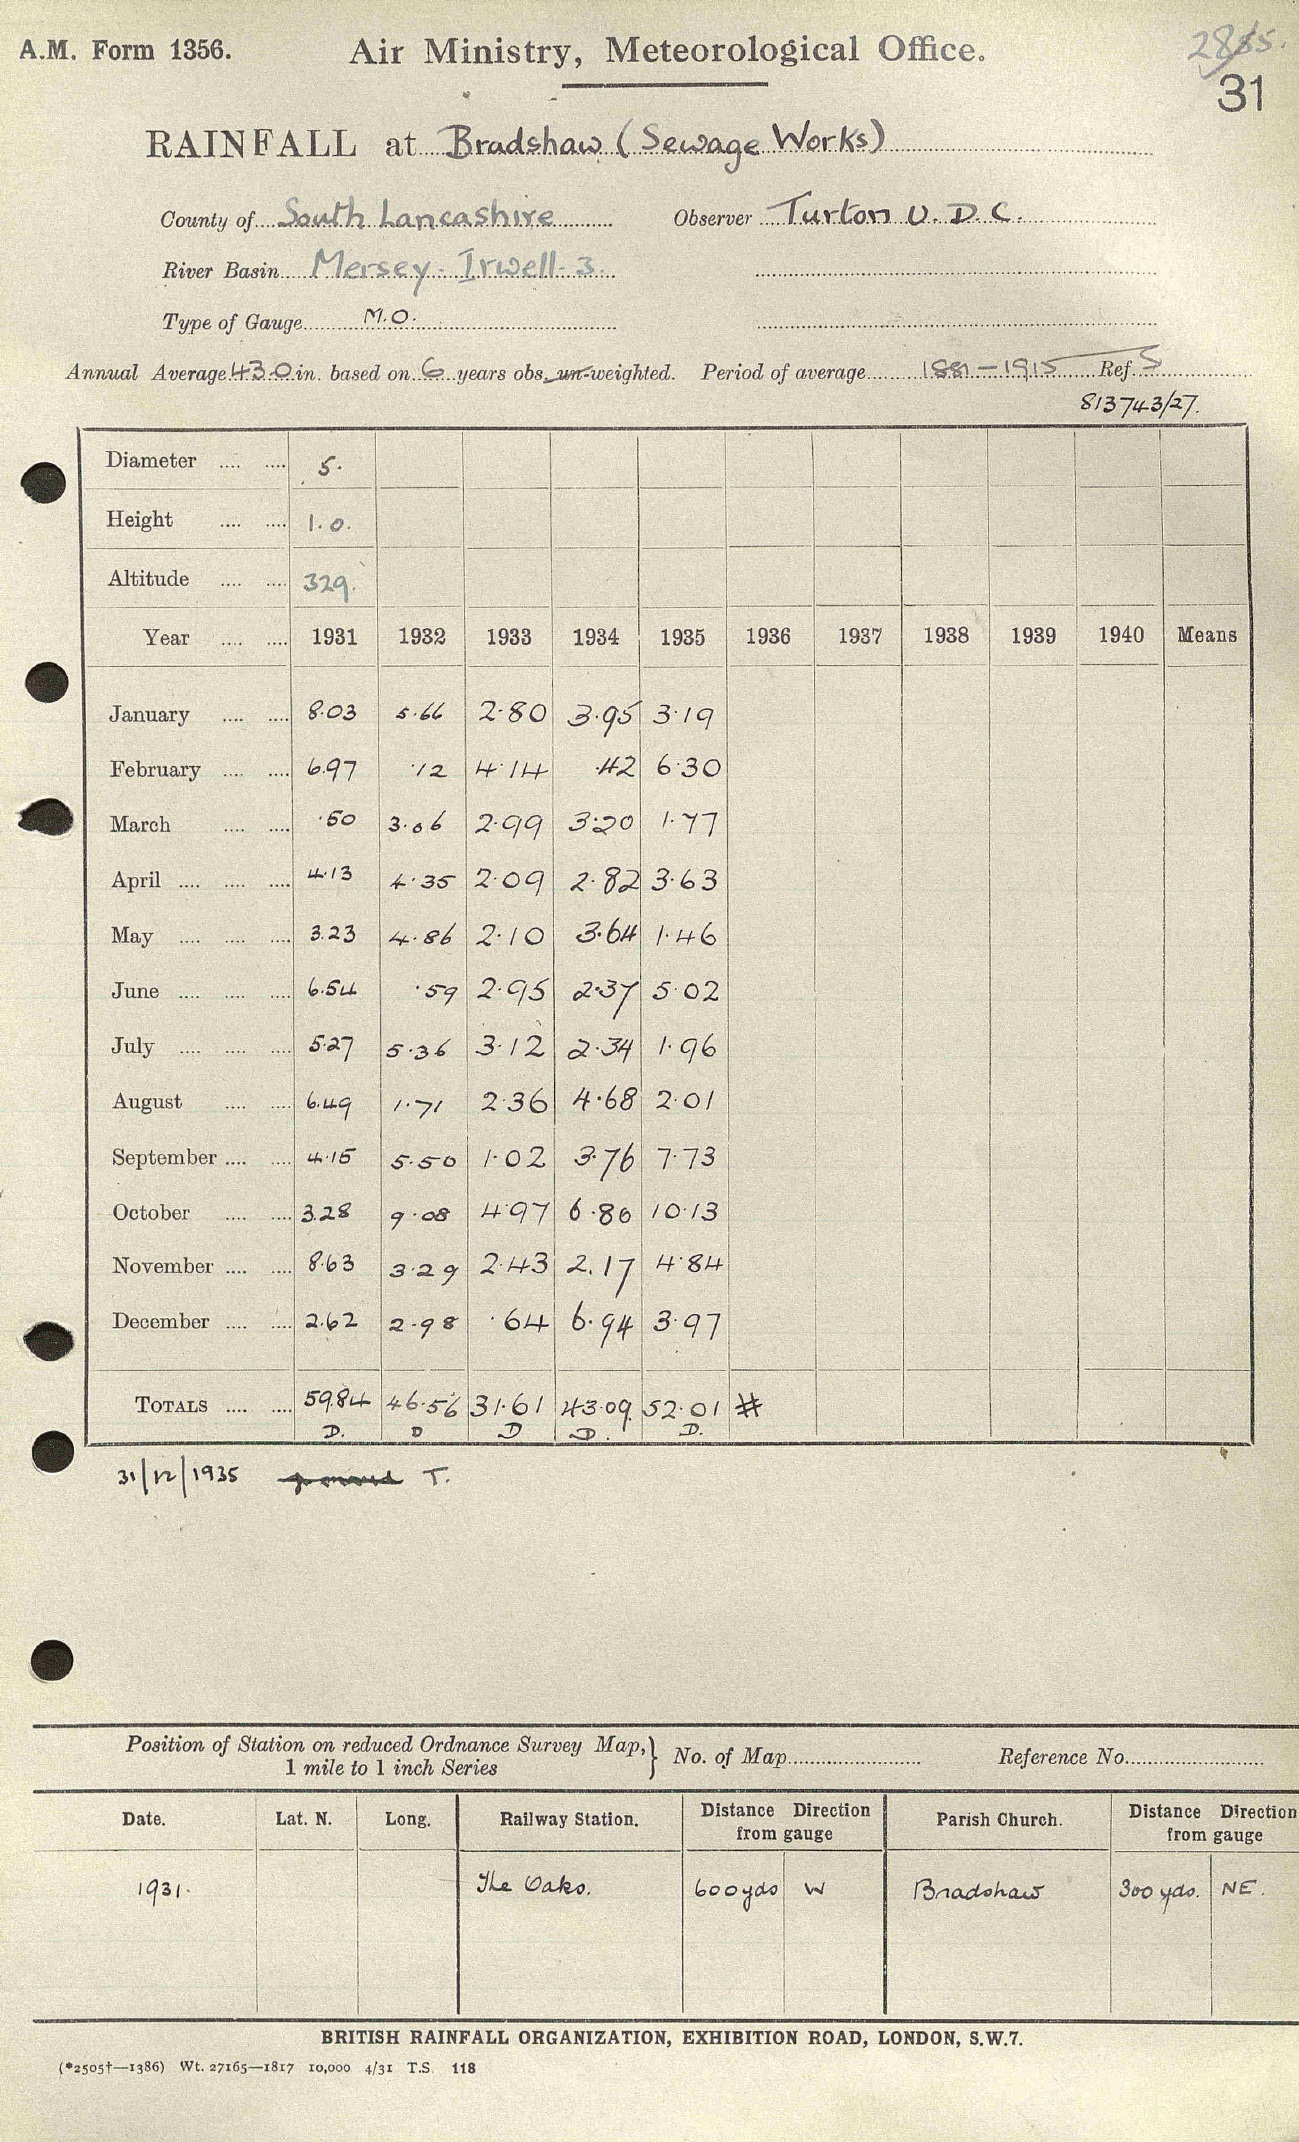 A.M. Form 1356. Air Ministry, Meteorological Office.
31
RAINFALL at Bradshaw (Sewage Works)
County of South Lancashire Observer Turton U.D.C.
River Basin Mersey - Irwell - 3.
Type of Gauge M.O.
Annual Average 43.0 in. based on 6 years obs. un-weighted. Period of average 1881-1915 Ref. S
813743/27.
Diameter .... .... 5.
Height .... .... 1.0.
Altitude .... .... 329.
Year .... .... 1931 1932 1933 1934 1935 1936 1937 1938 1939 1940 Means
January .... .... 8.03 5.66 2.80 3.95 3.19
February .... .... 6.97 .12 4.14 .42 6.30
March .... .... .50 3.06 2.99 3.20 1.77
April .... .... .... 4.13 4.35 2.09 2.82 3.63
May .... .... .... 3.23 4.86 2.10 3.64 1.46
June .... .... .... 6.54 .59 2.95 2.37 5.02
July .... .... .... 5.27 5.36 3.12 2.34 1.96
August .... .... 6.49 1.71 2.36 4.68 2.01
September .... .... 4.15 5.50 1.02 3.76 7.73
October .... .... 3.28 9.08 4.97 6.80 10.13
November .... .... 8.63 3.29 2.43 2.17 4.84
December .... .... 2.62 2.98 .64 6.94 3.97
TOTALS .... .... 59.84 46.56 31.61 43.09 52.01 #
D. D D D. D.
31/12/1935 T.
Position of Station on reduced Ordnance Survey Map, } No. of Map Reference No.
1 mile to 1 inch Series
Date. Lat. N. Long. Railway Station. Distance Direction from gauge Parish Church. Distance Direction from gauge
1931. The Oaks. 600 yds W Bradshaw 300 yds. NE.
BRITISH RAINFALL ORGANIZATION, EXHIBITION ROAD, LONDON, S.W.7.
(*2505†—1386) Wt. 27165—1817 10,000 4/31 T.S. 118